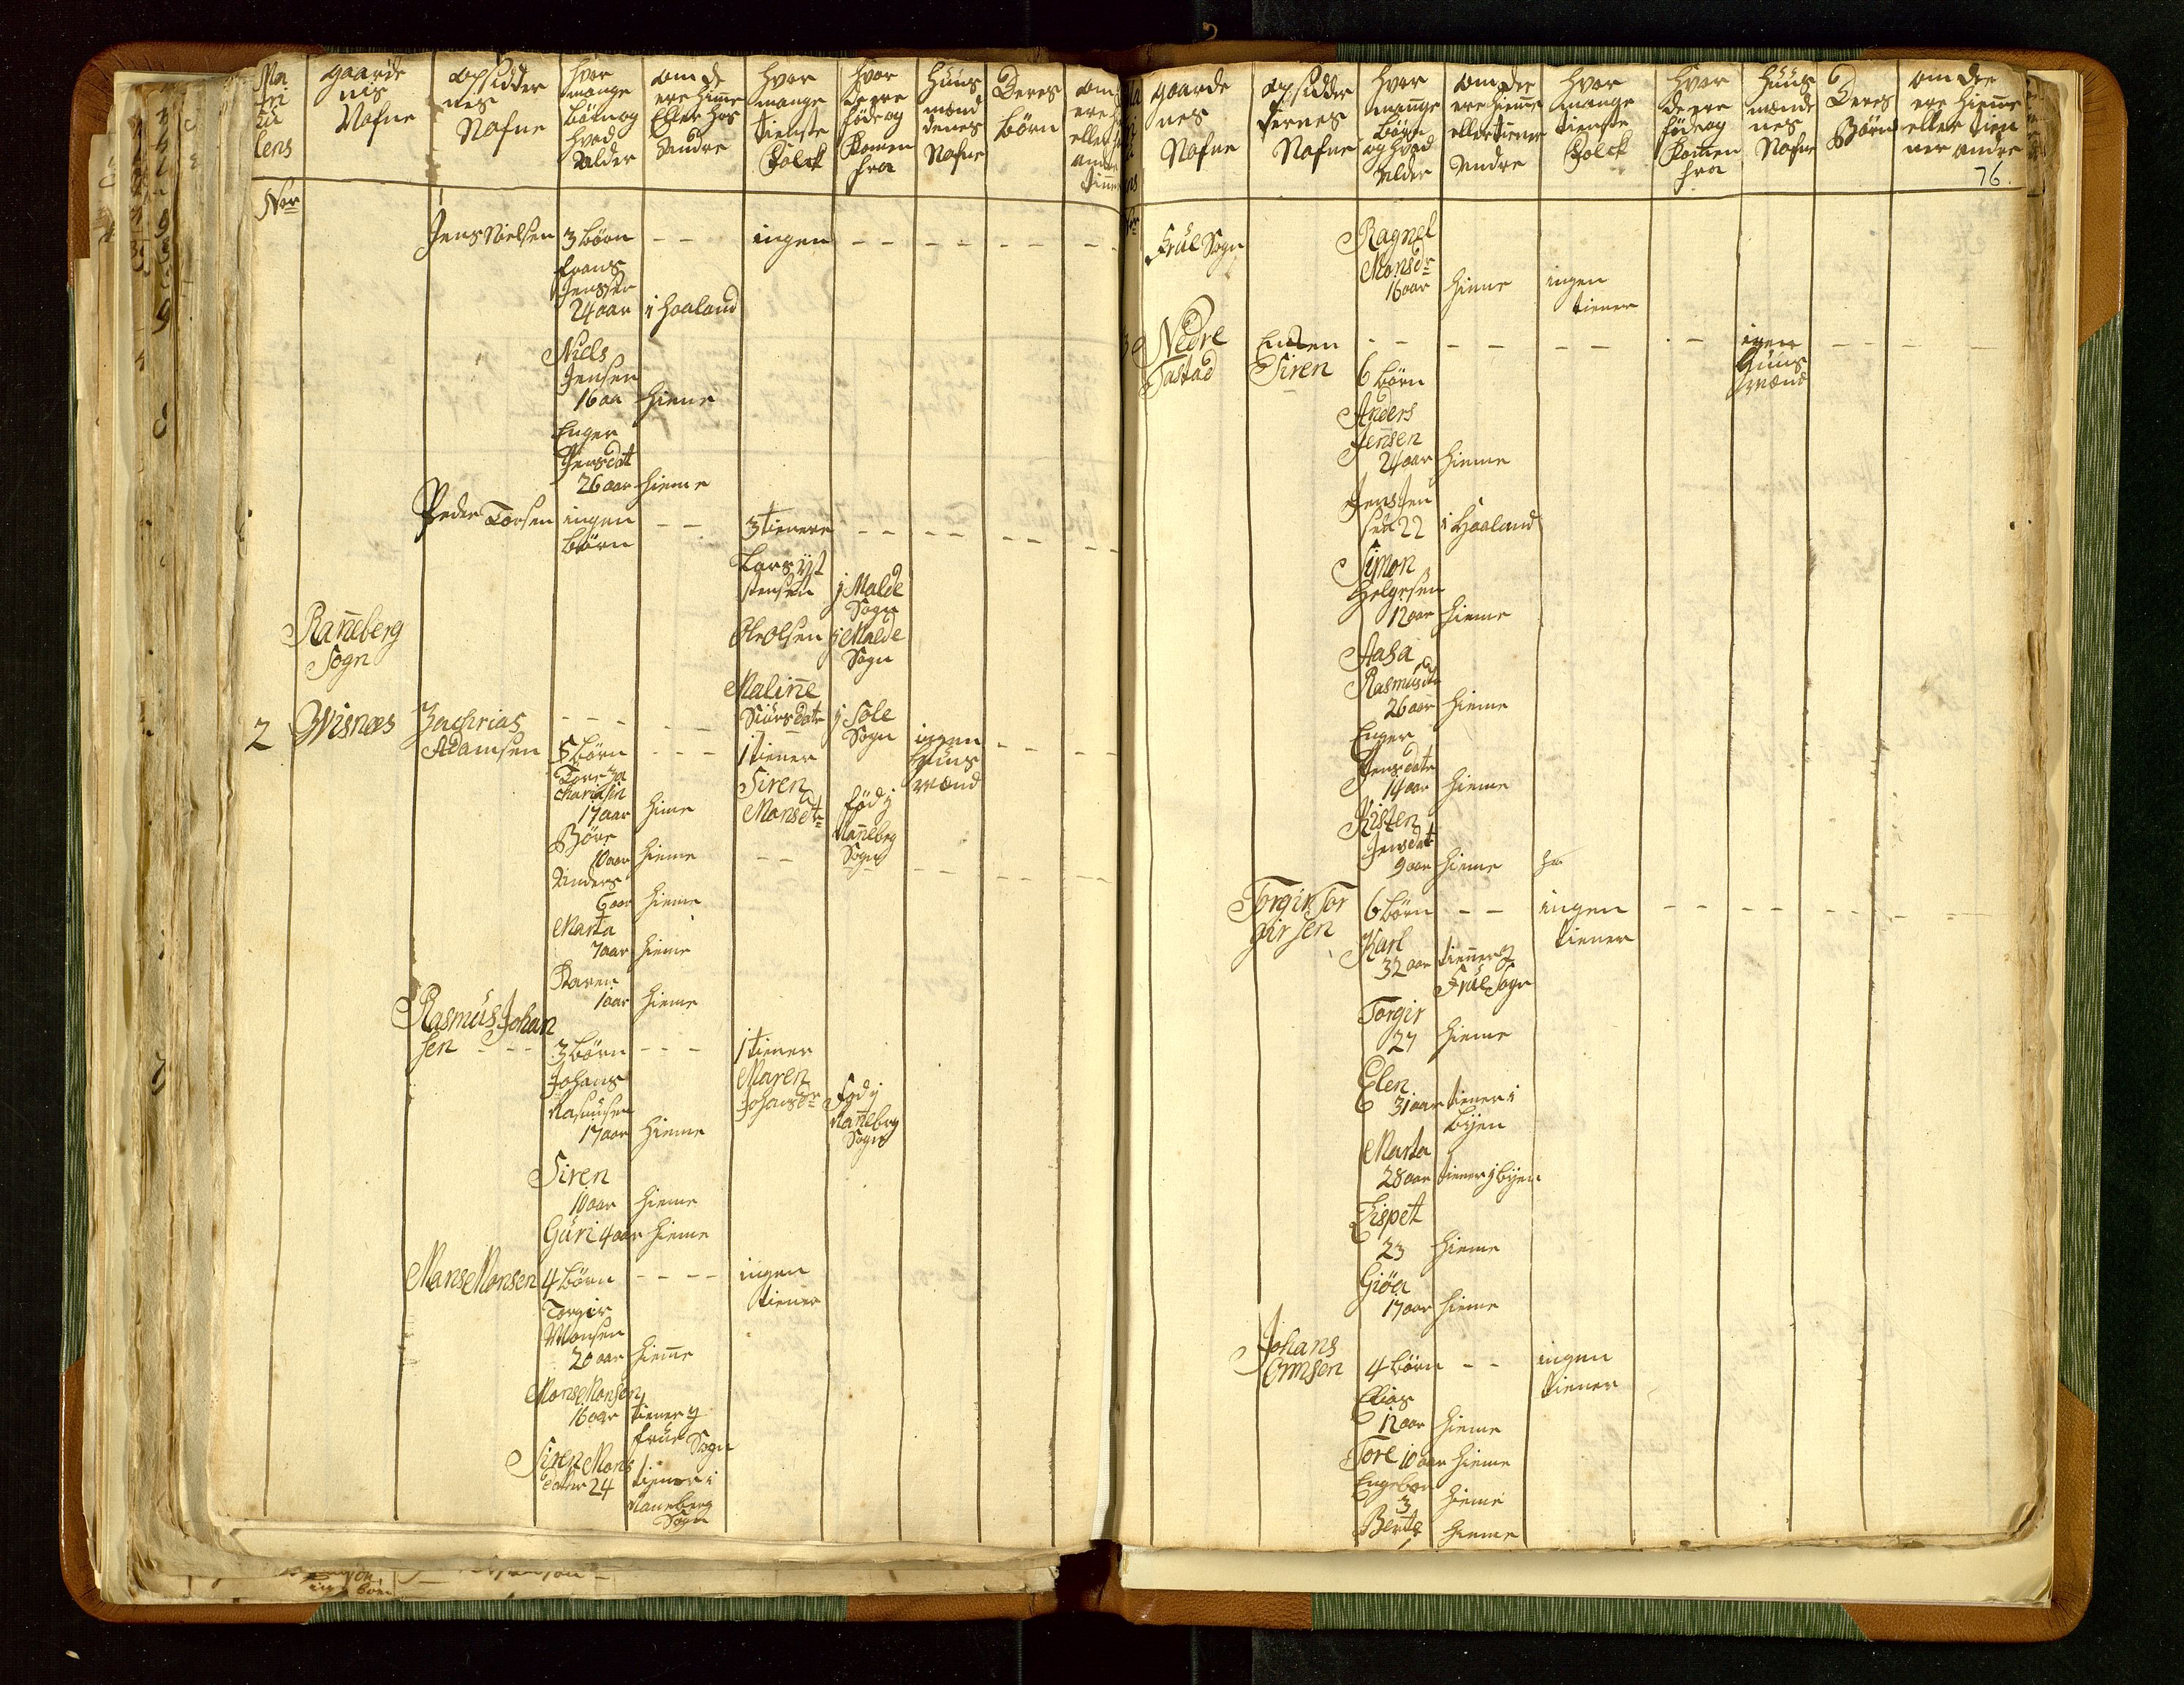 Ma
tri
cu
lens
Nor
gaarde
nes
Nafne
opsidder
nes
Nafne
hvor
mange
börn og
hvad
Alder
om de
ere hieme
Eller hos
andre
hvor
mange
tieniste
Folck
hvor
de ere
föde og
komen
fra
Huus
mænd
denes
Nafne
Deres
börn
om
ere
eller
andre
tiener
Jens Nielsen 3 börn - - ingen - - - - - -
frans
Jenssen
24 aar i Haaland
Niels
Jensen
16 aar hieme
Enger
Jensdat
26 aar hieme
Peder Torsen ingen - - 3 tienere - - - - - -
börn
Lars
stensen j Malde
Sogn
Ole Olsen j Malde
Sogn
Raneberg
Sogn
Maline
Siursdatr j Sole
Sogn
2 Wisnæs Zachrias - - - -
Adamsen 5 börn - - - 1 tiener ingen - - -
huus
mænd
Tore Za
chariasen
17 aar hieme
Siren
Monsdtr föd j
Raneberg
Sogn
Böre
10 aar hieme - -
Anders
6 aar hieme
Marta
7 aar hieme
Karen
1 aar hieme
Rasmus Johan
sen - - - 3 börn - - - 1 tiener
Johans
Rasmusen
17 aar hieme
Maren
Johansdr föd j
Raneberg
Sogn
Siren
10 aar hieme
Guri 4 aar hieme
Mans Monsen 4 börn - - - - ingen
tiener
Torgir
Monsen
20 aar hieme
Mons Monsen
16 aar tiener j
frue Sogn
Siren Mons
dater 24 tiener i
Raneberg
Sogn
gaarde
nes
Nafne
opsidder
fernes
Nafne
hvor
mange
börn
og hvad
Alder
om de
ere hieme
eller tiener
Andre
hvor
mange
tieniste
Folck
hvor
de ere
föde og
komen
fra
Huus
mænde
nes
Nafne
Deres
Börn
om de
ere hieme
eller tien
ner andre
76.
Frue Sogn
Ragnel
Monsdr
16 aar hieme ingen
tiener
3 Nedre Enken - - - - - - - - ingen - - - -
Tastad Siren 6 börn
huus
mænd
Anders
Jensen
24 aar hieme
Jens Jen
sen 22 i Haaland
Simon
Helgesen
12 aar hieme
Aasa
Rasmusdtr
26 aar hieme
Enger
Jensdatr
14 aar hieme
Kisten
Jensdat
9 aar hieme
Torgir Tor
girsen 6 börn - - ingen - - - - - - - -
tiener
Karl
32 aar tienner j
Frue Sogn
Torgir
27 hieme
Elen
31 aar tiener i
byen
Marta
28 aar tiener j byen
Lispet
23 hieme
Giöa
17 aar hieme
Johans
Ormsen 4 börn - - ingen
tiener
Elias
12 aar hieme
Tore 10 aar hieme
Engebor
3 hieme
Berte hieme